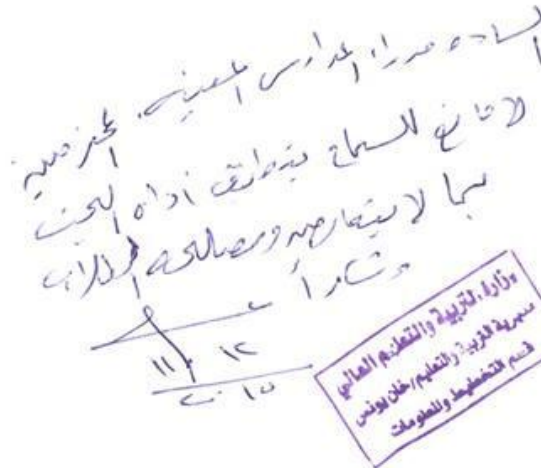 السادة مدراء المدارس المعنية. المحترمين
لا مانع للسماح بتطبيق أداة البحث
بما لا يتعارض ومصالحة الطلاب
وشكراً
١٢
١١
٢٠١٥
وزارة التربية والتعليم العالي
مديرية التربية والتعليم/خان يونس
قسم التخطيط والمعلومات